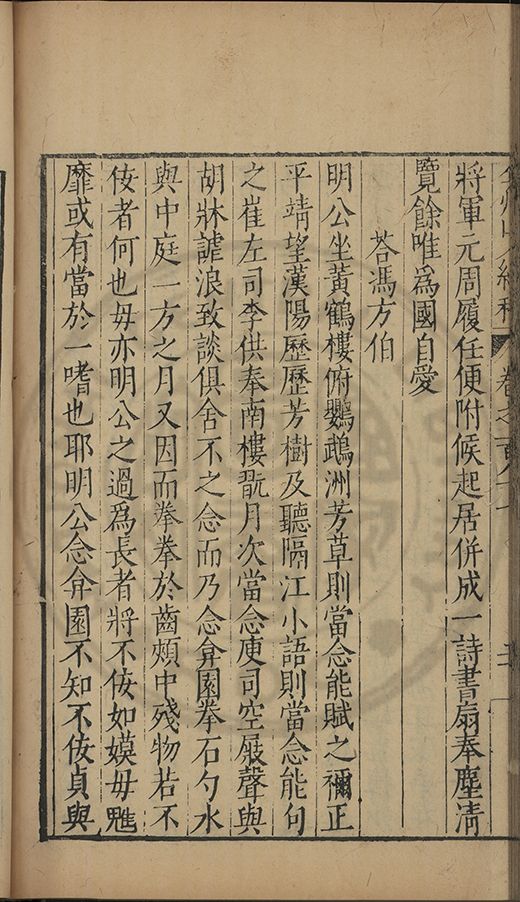 將軍元周履任便附候起居併成一詩書扇奉塵清
覽餘唯爲國自愛
荅馮方伯
明公坐黃鶴樓俯鸚鵡洲芳草則當念能賦之禰正
平靖望漢陽歷歷芳樹及聽隔江小語則當念能句
之崔左司李供奉南樓翫月次當念庾司空屐聲與
胡牀謔浪致談俱舍不之念而乃念弇園拳石勺水
與中庭一方之月又因而拳拳於齒頰中殘物若不
佞者何也毋亦明公之過爲長者將不佞如嫫毋魋
靡或有當於一嗜也耶明公念弇園不知不佞貞與